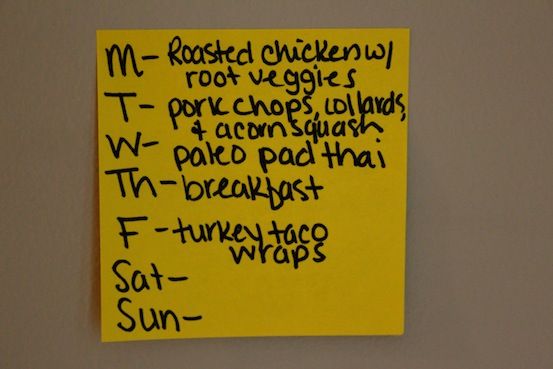 M- Roasted chicken w/
root veggies
T- pork chops, collards,
& acorn squash
W- paleo pad thai
Th- breakfast
F - turkey taco
wraps
Sat-
Sun-